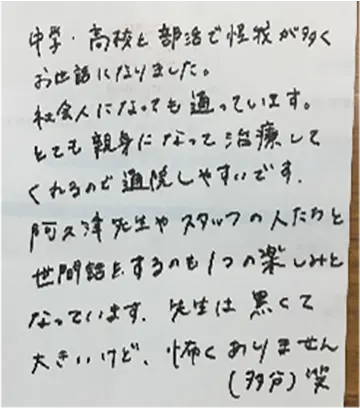 中学・高校と部活で怪我が多く
お世話になりました。
社会人になっても通っています。
とても親身になって治療して
くれるので通院しやすいです.
阿久津先生やスタッフの人たちと
世間話をするのも1つの楽しみと
なっています. 先生は黒くて
大きいけど、怖くありません
(多分)笑